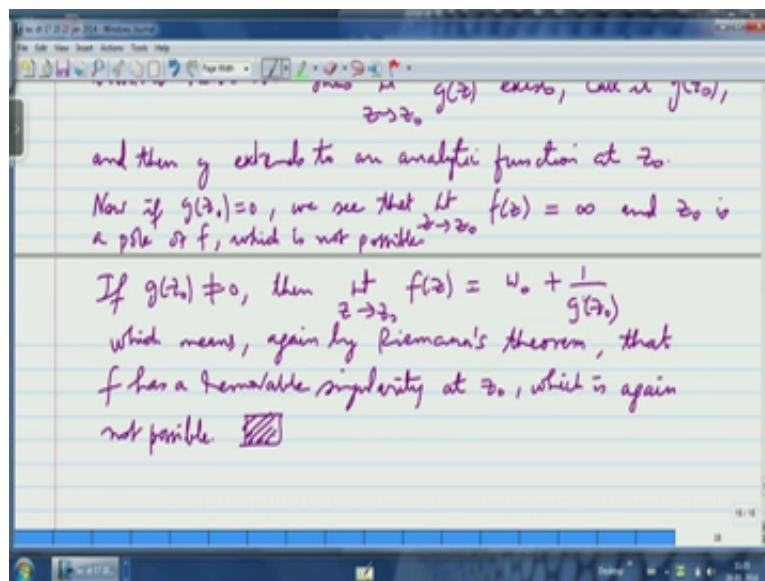 File Edit View Insert Actions Tools Help
Page Width
g(z) exists, call it g(z₀),
z→z₀
and then g extends to an analytic function at z₀.
Now if g(z₀)=0, we see that lt f(z) = ∞ and z₀ is
z→z₀
a pole of f, which is not possible
If g(z₀) ≠ 0, then lt f(z) = w₀ + 1/g(z₀)
z→z₀
which means, again by Riemann's theorem, that
f has a removable singularity at z₀, which is again
not possible.